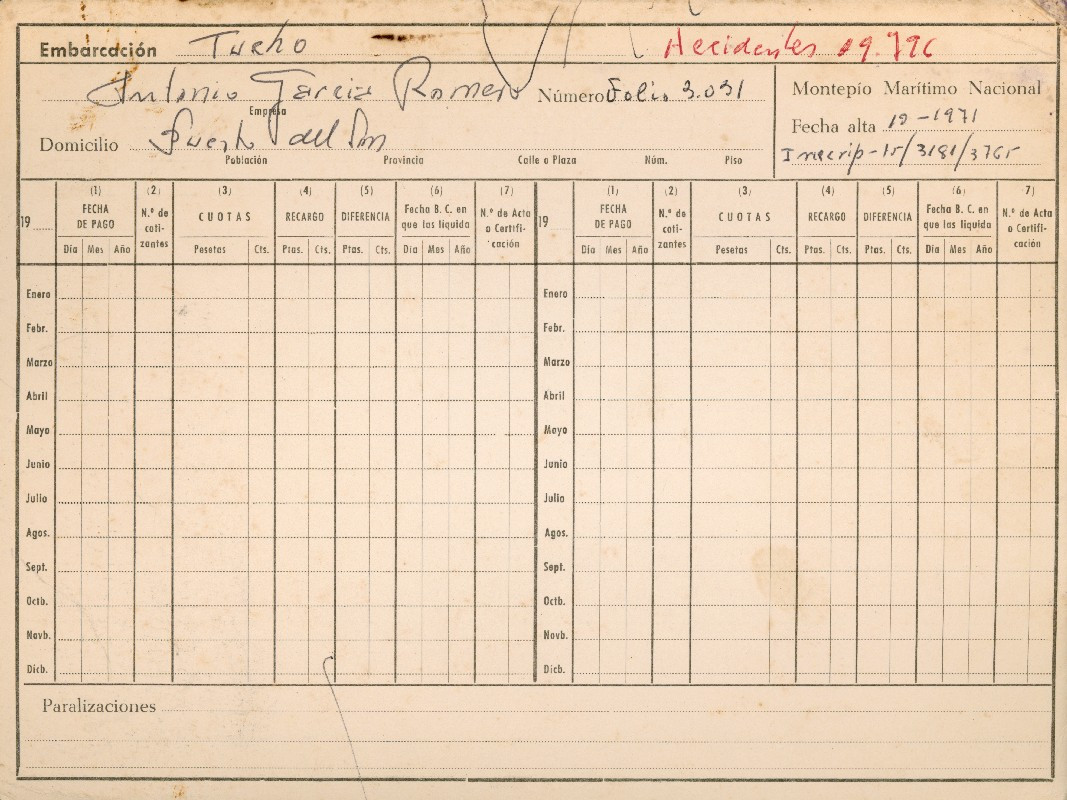 Embarcación Tucho Accidentes
Antonio Garcia Romero Número Folio 3.031
Empresa
Domicilio Puerto del Son
Población Provincia Calle o Plaza Núm. Piso
Montepío Marítimo Nacional
Fecha alta 10-1971
Inscrip-15/3181/3765
19 (1) (2) (3) (4) (5) (6) (7) 19 (1) (2) (3) (4) (5) (6) 7)
FECHA DE PAGO N.º de coti-zantes CUOTAS RECARGO DIFERENCIA Fecha B. C. en que las liquida N.º de Acta o Certifi-cación FECHA DE PAGO N.º de coti-zantes CUOTAS RECARGO DIFERENCIA Fecha B. C. en que las liquida N.º de Acta o Certifi-cación
Día Mes Año Pesetas Cts. Ptas. Cts. Ptas. Cts. Día Mes Año Día Mes Año Pesetas Cts. Ptas. Cts. Ptas. Cts. Día Mes Año
Enero Enero
Febr. Febr.
Marzo Marzo
Abril Abril
Mayo Mayo
Junio Junio
Julio Julio
Agos. Agos.
Sept. Sept.
Octb. Octb.
Novb. Novb.
Dicb. Dicb.
Paralizaciones